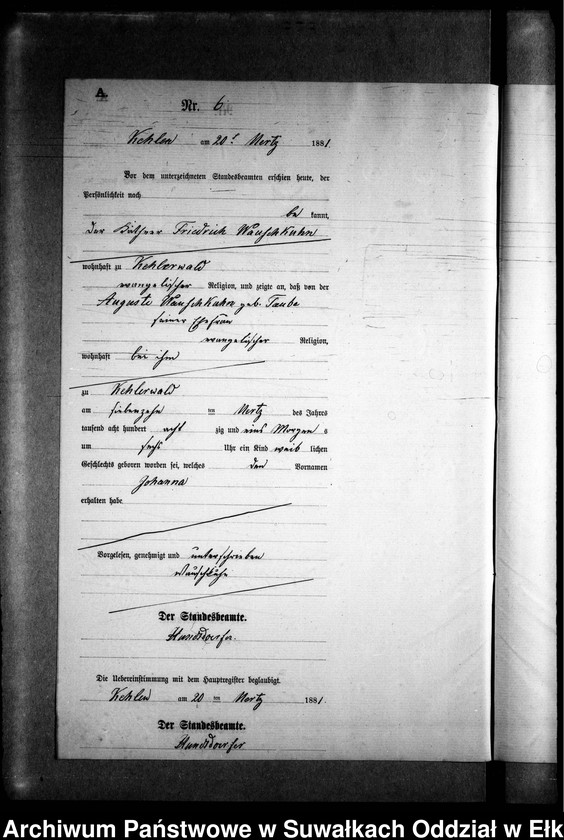 A.
Nr. 6
Kehlen am 20t März 1881
Vor dem unterzeichneten Standesbeamten erschien heute, der
Persönlichkeit nach
be kannt,
der Käthner Friedrich Wauschkuhn
wohnhaft zu Kehlerwald
evangelischer Religion, und zeigte an, daß von der
Auguste Wauschkuhn geb. Taube
seiner Ehefrau
evangelischer Religion,
wohnhaft bei ihm
zu Kehlerwald
am siebenzehn ten März des Jahres
tausend acht hundert acht zig und eins Morgen s
um sechs Uhr ein Kind weib lichen
Geschlechts geboren worden sei, welches den Vornamen
Johanna
erhalten habe.
Vorgelesen, genehmigt und unterschrieben
Der Standesbeamte.
Die Uebereinstimmung mit dem Hauptregister beglaubigt.
Kehlen am 20 ten März 1881.
Der Standesbeamte.
Archiwum Państwowe w Suwałkach Oddział w Ełk